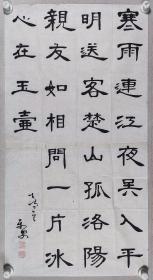 寒雨連江夜吴入平
明送客楚山孤洛陽
親友如相問一片冰
心在玉壺